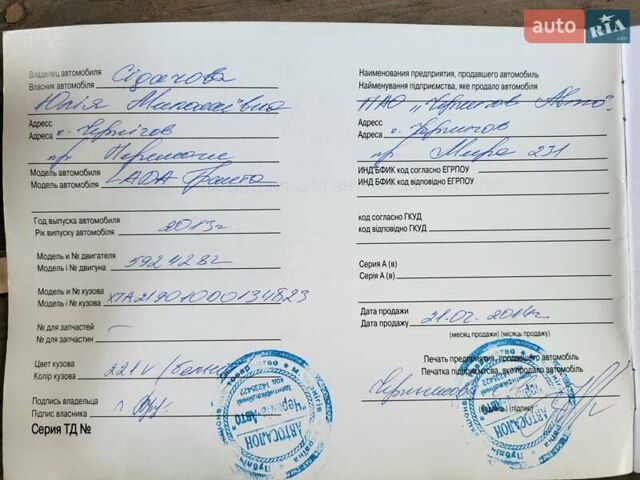 auto RIA .com
Владелец автомобиля
Власник автомобіля Сідачова
Юлія Миколаївна
Адрес
Адреса г. Чернігов
пр.
Модель автомобиля
Модель автомобіля LADA Гранта
Год выпуска автомобиля
Рік випуску автомобіля 2013г.
Модель и № двигателя
Модель і № двигуна 5924282
Модель и № кузова
Модель і № кузова XTA219010D0134823
№ для запчастей
№ для запчастин –
Цвет кузова
Колір кузова 221v
Подпись владельца
Підпис власника
Серия ТД №
Наименования предприятия, продавшего автомобиль
Найменування підприємства, яке продало автомобіль
ПАО „Чернигов Авто"
Адрес
Адреса г. Чернигов
пр. Мира 231
ИНД БФИК код согласно ЕГРПОУ
ИНД БФИК код відповідно ЕГРПОУ
код согласно ГКУД
код відповідно ГКУД
Серия А (в)
Серія А (в)
Дата продажи
Дата продажу 21.02.
(месяц продажи) (місяць продажу)
Печать предприятия, продавшего автомобиль
Печатка підприємства, яке продало автомобіль
(підпис)
АВТОСАЛОН
код 14235422
АВТОСАЛОН